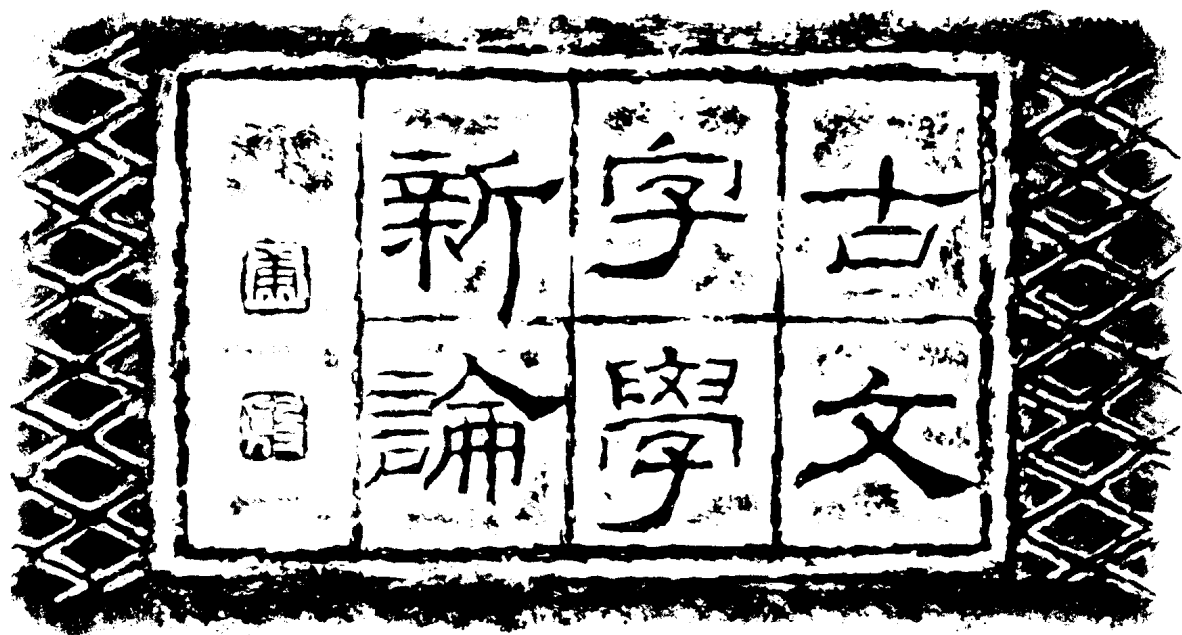 古文
字學
新論